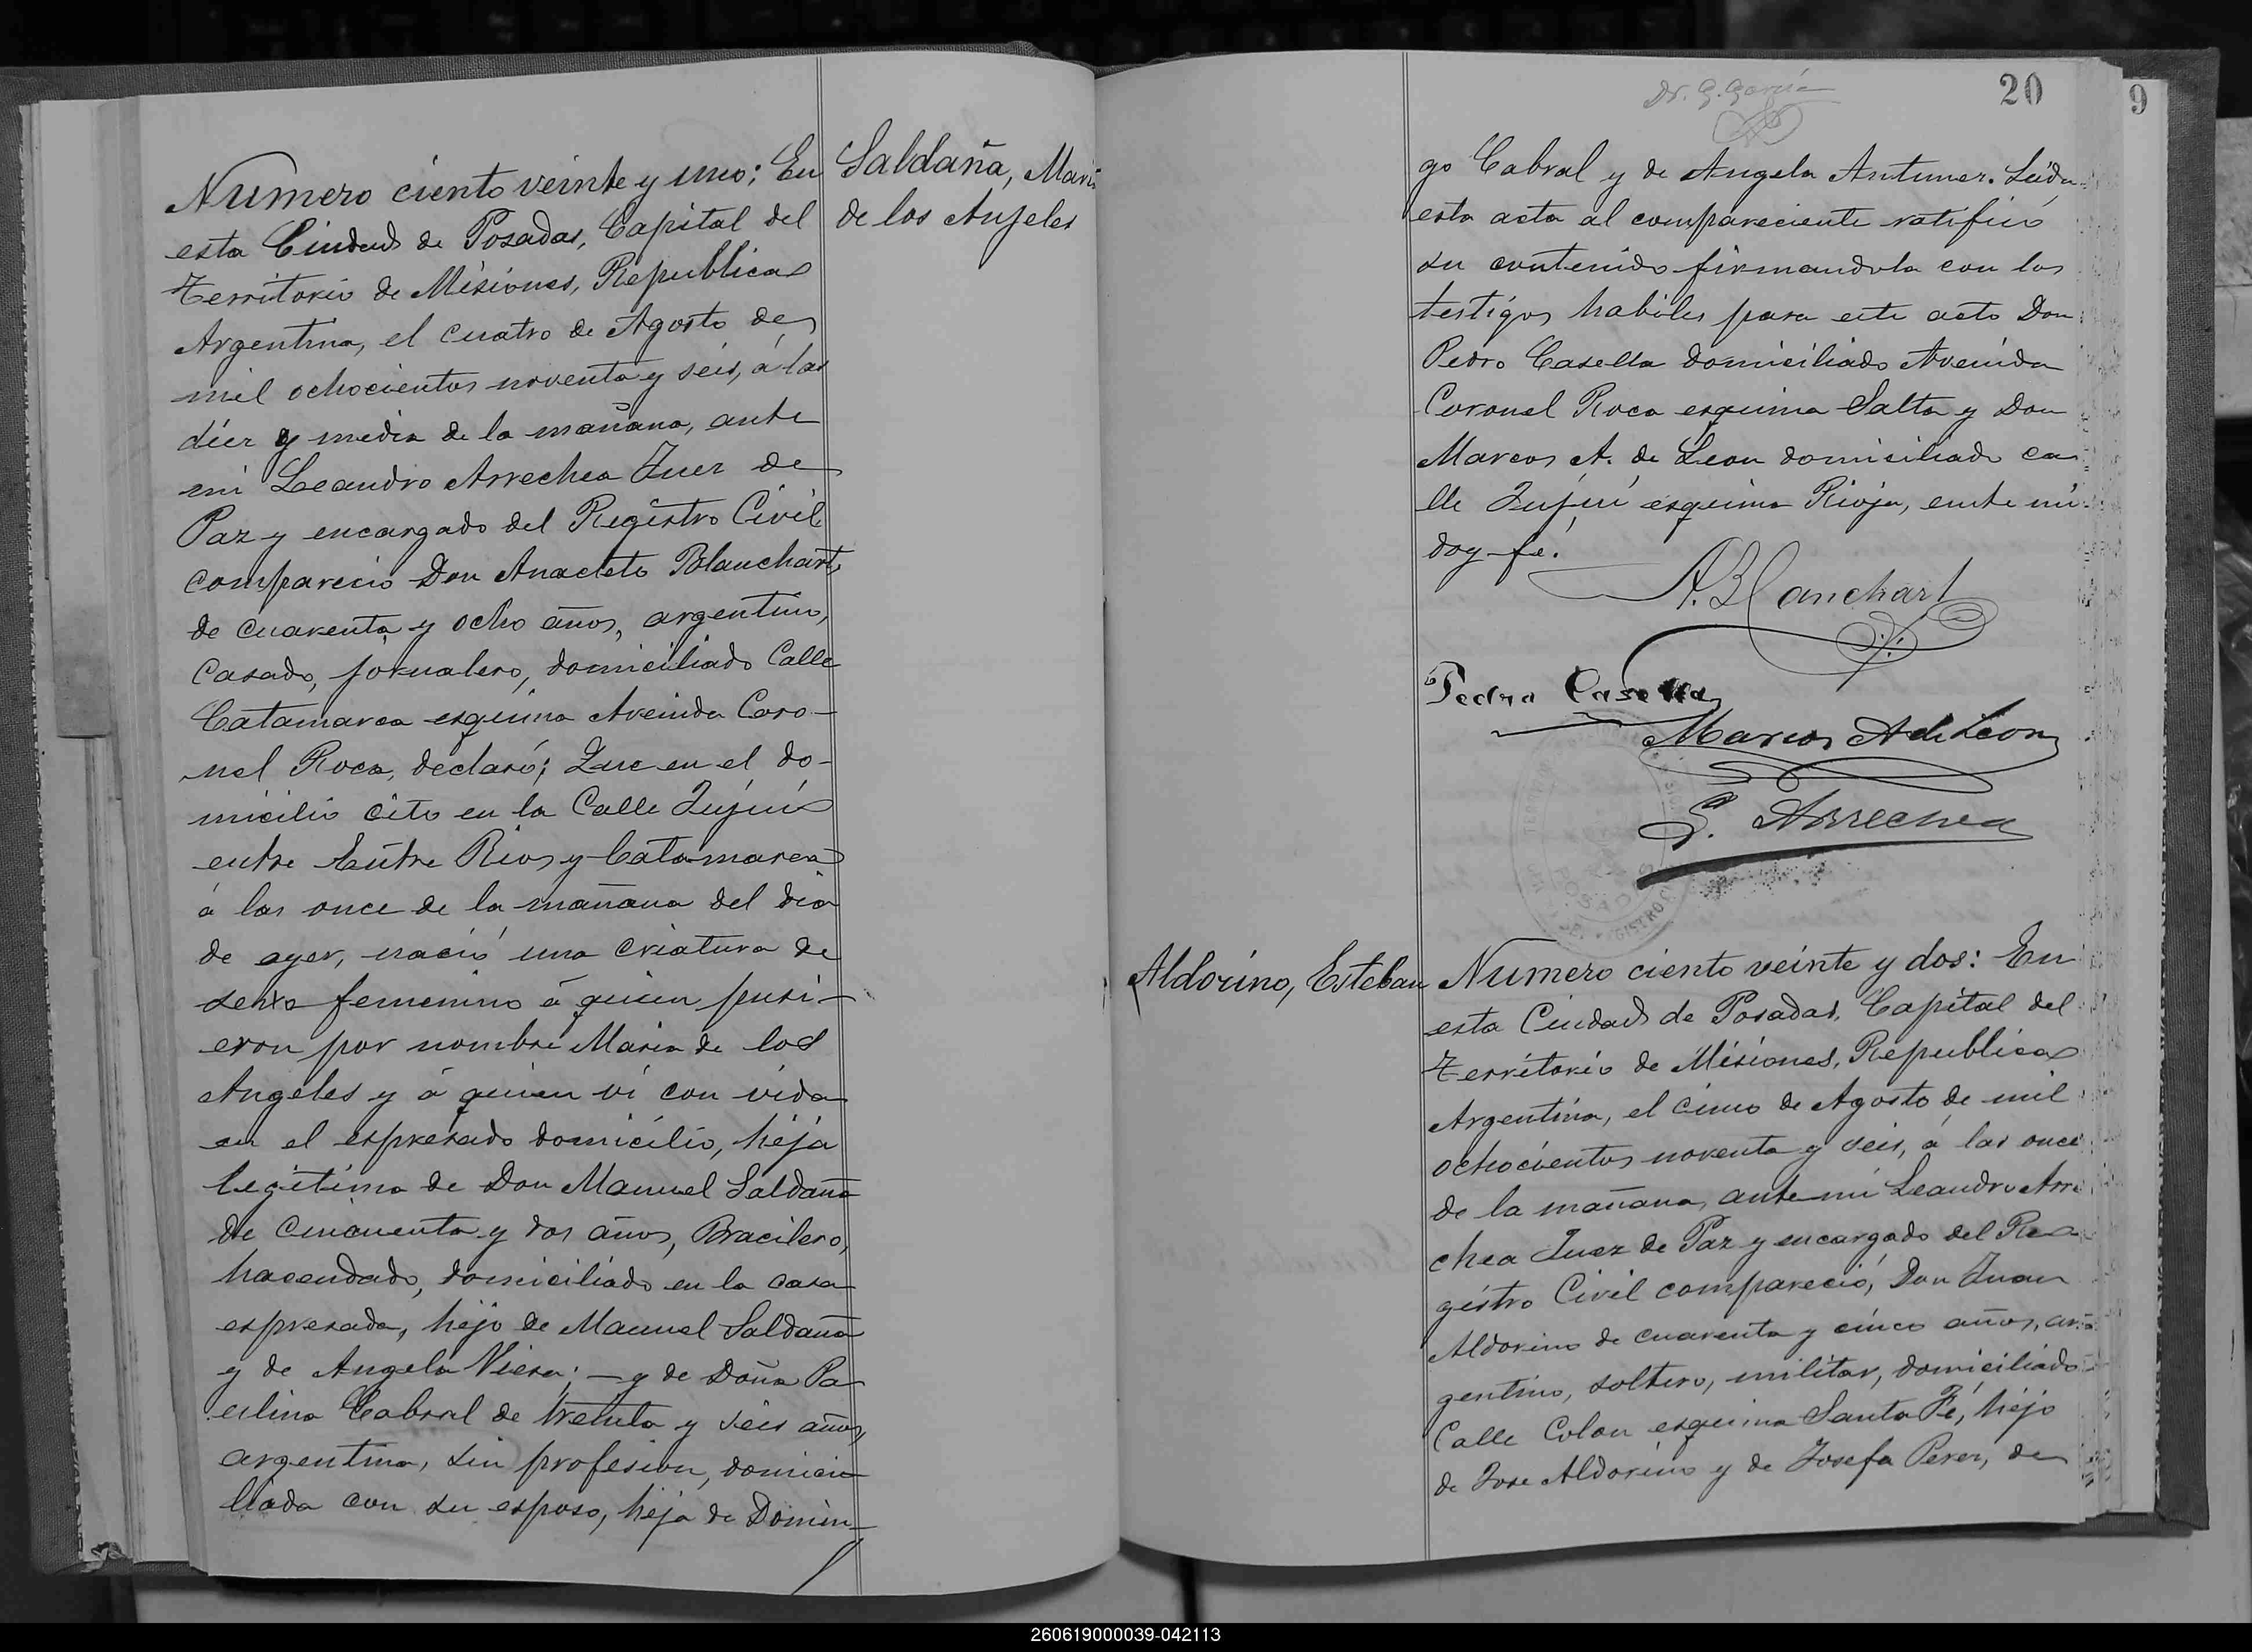 Numero ciento veinte y uno: En
esta Ciudad de Posadas, Capital del
Territorio de Misiones, Republica
Argentina, el cuatro de Agosto de
mil ochocientos noventa y seis, á las
diez y media de la mañana, ante
mi Leandro Arrechea Juez de
Paz y encargado del Registro Civil
comparecio Don Anacleto Blanchart,
de cuarenta y ocho años, argentino,
casado, jornalero, domiciliado Calle
Catamarca esquina Avenida Coro-
nel Roca, declaró; Que en el do-
micilio cito en la Calle Jujuí
entre Entre Rios y Catamarca
á las once de la mañana del dia
de ayer, nació una criatura de
sexo femenino á quien pusi-
eron por nombre Maria de los
Angeles y á quien ví con vida
en el espresado domicilio, hija
legitima de Don Manuel Saldaña
de cincuenta y dos años, Bracilero,
hacendado, domiciliado en la casa
espresada, hijo de Manuel Saldaña
y de Angela Viera; - y de Doña Pa-
ulina Cabral de treinta y seis años,
argentina, sin profesion, domici-
liada con su esposo, hija de Domin-
Saldaña, Maria
de los Anjeles
Dr. G. Garcia
20
9
go Cabral y de Angela Antunez. Leida
esta acta al compareciente ratificó
su contenido firmandola con los
testigos habiles para este acto Don
Pedro Casella domiciliado Avenida
Coronel Roca esquina Salta y Don
Marcos A. de Leon domiciliado ca
lle Jujuí esquina Rioja, ante mi
doy fe.
A. Blanchart
Pedro Casella
Marcos A de Leon
L. Arrechea
POSADAS
Aldorino, Esteban
Numero ciento veinte y dos: En
esta Ciudad de Posadas, Capital del
Territorio de Misiones, Republica
Argentina, el cinco de Agosto de mil
ochocientos noventa y seis, á las once
de la mañana, ante mi Leandro Arre
chea Juez de Paz y encargado del Re
gistro Civil compareció, Don Juan
Aldorino de cuarenta y cinco años, ar
gentino, soltero, militar, domiciliado
Calle Colon esquina Santa Fé, hijo
de Jose Aldorino y de Josefa Perez, de
260619000039-042113